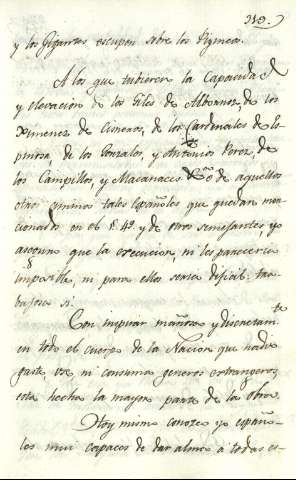 319.
y los Gigantes escupen sobre los Pigmeos.
A los que tubieren la Capacidad
y elevacion de los Giles de Albornoz, de los
Ximenez de Cisneros, de los Cardenales de Es-
pinosa, de los Gonzalos, y Antonios Perez, de
los Campillos, y Macanaces &.ª de aquellos
otros eminentales Españoles que quedan men-
cionados en el §. 42 y de otros semejantes yo
aseguro que la execucion, ni les pareceria
imposible, ni para ellos seria dificil: tra-
bajosa si.
Con inspirar mañosa y discretam.te
en todo el cuerpo de la Nacion que nadie
gaste, use, ni consuma generos extrangeros,
esta hecha la mayor parte de la obra.
Hoy mismo conozco yo españo-
les mui capaces de dar alma à todas es-